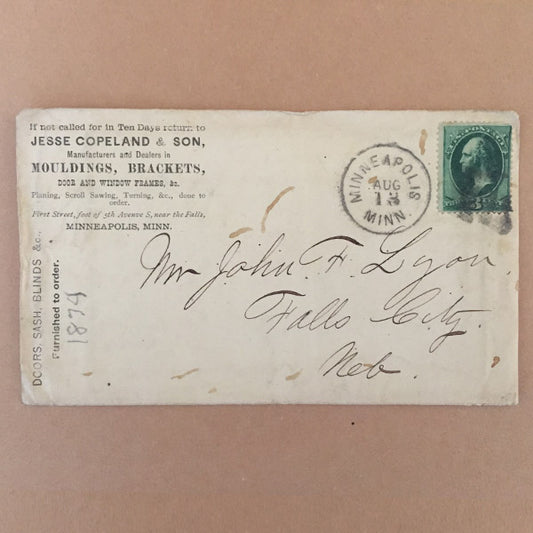 If not called for in Ten Days return to
JESSE COPELAND & SON,
Manufacturers and Dealers in
MOULDINGS, BRACKETS,
DOOR AND WINDOW FRAMES, &c.
Planing, Scroll Sawing, Turning, &c., done to
order.
First Street, foot of 5th Avenue S, near the Falls,
MINNEAPOLIS, MINN.
DOORS, SASH, BLINDS &c.,
Furnished to order.
1879
MINNEAPOLIS
AUG
13
MINN.
3
Mr John F. Lyon.
Falls City.
Neb.